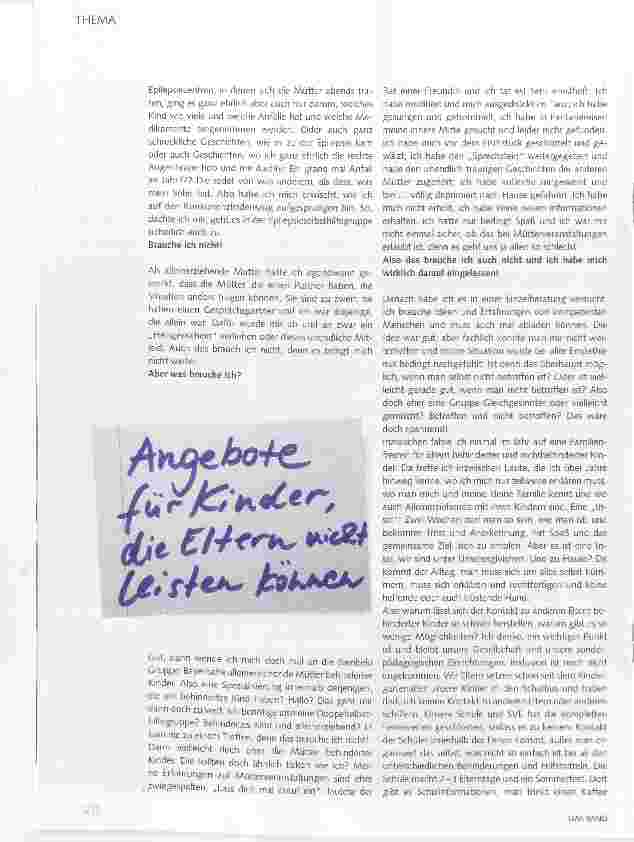 THEMA
Epilepsiezentren, in denen sich die Mütter abends tra-
fen, ging es ganz ehrlich aber auch nur darum, welches
Kind wie viele und welche Anfälle hat und welche Me-
dikamente eingenommen werden. Oder auch ganz
schreckliche Geschichten, wie es zu der Epilepsie kam
oder auch Geschichten, wo ich ganz ehrlich die rechte
Augenbraue hob und mir dachte: Ein grand mal Anfall
im Jahr??? Die redet von was anderem, als dem, was
mein Sohn hat. Also habe ich mich erwischt, wie ich
auf den aufgesprungen bin. So,
dachte ich mir, geht es in der Epilepsieselbsthilfegruppe
sicherlich auch zu.
Brauche ich nicht!
Als alleinerziehende Mutter hatte ich irgendwann ge-
merkt, dass die Mütter, die einen Partner haben, die
Situation anders tragen können. Sie sind zu zweit, sie
haben einen Gesprächspartner und ich war diejenige,
die allein war. Dafür wurde mir ab und an zwar ein
„Heiligenschein" verliehen oder dieses unsägliche Mit-
leid. Auch das brauch ich nicht, denn es bringt mich
nicht weiter.
Aber was brauche ich?
Angebote
für Kinder,
die Eltern nicht
leisten können
Gut, dann wende ich mich doch mal an die
Gruppe Bayerische alleinerziehende Mütter behinderter
Kinder. Also eine Spezialisierung innerhalb derjenigen,
die ein behindertes Kind haben? Hallo? Das geht mir
dann doch zu weit. Ich benötige also eine Doppelselbst-
hilfegruppe? Behindertes Kind und alleinerziehend? Es
kam nie zu einem Treffen, denn das brauche ich nicht!
Dann vielleicht doch eher die Mütter behinderter
Kinder. Die sollten doch ähnlich ticken wie ich? Mei-
ne Erfahrungen auf Mütterveranstaltungen sind eher
zwiegespalten. „Lass dich mal drauf ein", lautete der
Rat einer Freundin und ich tat es! Sehr ernsthaft. Ich
habe meditiert und mich ausgedrückt im Tanz, ich habe
gesungen und getrommelt, ich habe in Fantasiereisen
meine innere Mitte gesucht und leider nicht gefunden.
Ich habe mich vor dem Frühstück geschüttelt und ge-
wälzt, ich habe den „Sprechstein" weitergegeben und
habe den unendlich traurigen Geschichten der anderen
Mütter zugehört, ich habe kollektiv mitgeweint und
bin … völlig deprimiert nach Hause gefahren. Ich habe
mich nicht erholt, ich habe keine neuen Informationen
erhalten, ich hatte nur bedingt Spaß und ich war mir
nicht einmal sicher, ob das bei Mütterveranstaltungen
erlaubt ist, denn es geht uns ja allen so schlecht.
Also das brauche ich auch nicht und ich habe mich
wirklich darauf eingelassen!
Danach habe ich es in einer Einzelberatung versucht.
Ich brauche Ideen und Erfahrungen von kompetenten
Menschen und muss auch mal abladen können. Die
Idee war gut, aber fachlich konnte man mir nicht wei-
terhelfen und meine Situation wurde bei aller Empathie
nur bedingt nachgefühlt. Ist denn das überhaupt mög-
lich, wenn man selbst nicht betroffen ist? Oder ist viel-
leicht gerade gut, wenn man nicht betroffen ist? Also
doch eher eine Gruppe Gleichgesinnter oder vielleicht
gemischt? Betroffen und nicht betroffen? Das wäre
doch spannend!
Inzwischen fahre ich einmal im Jahr auf eine Familien-
freizeit für Eltern behinderter und nichtbehinderter Kin-
der. Da treffe ich inzwischen Leute, die ich über Jahre
hinweg kenne, wo ich mich nur teilweise erklären muss,
wo man mich und meine kleine Familie kennt und wo
auch Alleinerziehende mit ihren Kindern sind. Eine „In-
sel"! Zwei Wochen darf man so sein, wie man ist, und
bekommt Trost und Anerkennung, hat Spaß und das
gemeinsame Ziel, sich zu erholen. Aber es ist eine In-
sel, wir sind unter Unseresgleichen. Und zu Hause? Da
kommt der Alltag, man muss sich um alles selbst küm-
mern, muss sich erklären und rechtfertigen und keine
helfende oder auch tröstende Hand.
Aber warum lässt sich der Kontakt zu anderen Eltern be-
hinderter Kinder so schwer herstellen, warum gibt es so
wenige Möglichkeiten? Ich denke, ein wichtiger Punkt
ist und bleibt unsere Gesellschaft und unsere sonder-
pädagogischen Einrichtungen. Inklusion ist noch nicht
angekommen. Wir Eltern setzen schon seit dem Kinder-
gartenalter unsere Kinder in den Schulbus und haben
dadurch keinen Kontakt zu anderen Eltern oder anderen
Schülern. Unsere Schule und SVE hat die kompletten
Ferienzeiten geschlossen, sodass es zu keinem Kontakt
der Schüler innerhalb der Ferien kommt, außer man or-
ganisiert das selbst, was nicht so einfach ist bei all den
unterschiedlichen Behinderungen und Hilfsmitteln. Die
Schule macht 2 – 3 Elterntage und ein Sommerfest. Dort
gibt es Schulinformationen, man trinkt einen Kaffee
DAS BAND